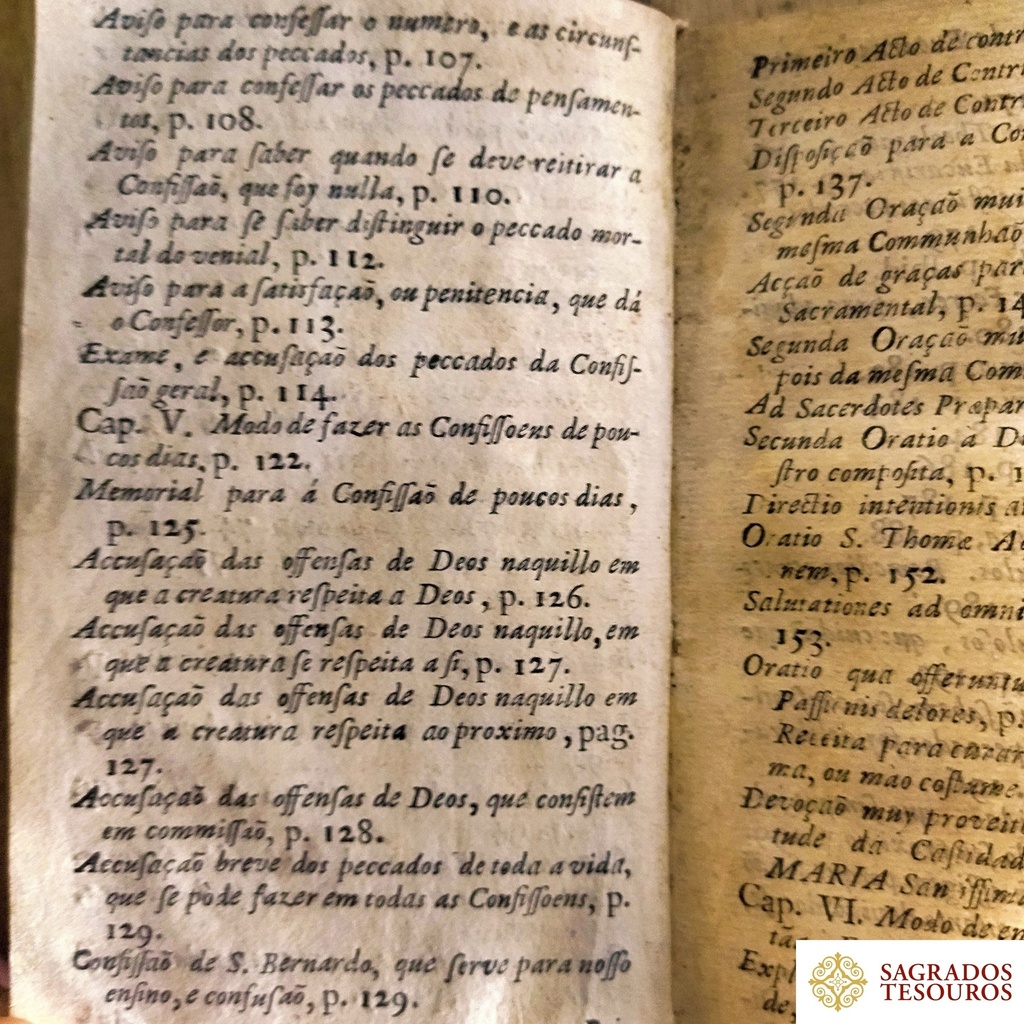 Aviso para confessar o numero, e as circuns-
tancias dos peccados, p. 107.
Aviso para confessar os peccados de pensamen-
tos, p. 108.
Aviso para saber quando se deve reitirar a
Confissaõ, que foy nulla, p. 110.
Aviso para se saber distinguir o peccado mor-
tal do venial, p. 112.
Aviso para a satisfaçaõ, ou penitencia, que dá
o Confessor, p. 113.
Exame, e accusaçaõ dos peccados da Confis-
saõ geral, p. 114.
Cap. V. Modo de fazer as Confissoens de pou-
cos dias, p. 122.
Memorial para á Confissaõ de poucos dias,
p. 125.
Accusaçaõ das offensas de Deos naquillo em
que a creatura respeita a Deos, p. 126.
Accusaçaõ das offensas de Deos naquillo, em
que a creatura se respeita a si, p. 127.
Accusaçaõ das offensas de Deos naquillo em
que a creatura respeita ao proximo, pag.
127.
Accusaçaõ das offensas de Deos, que consistem
em commissaõ, p. 128.
Accusaçaõ breve dos peccados de toda a vida,
que se póde fazer em todas as Confissoens, p.
129.
Confissaõ de S. Bernardo, que serve para nosso
ensino, e confusaõ, p. 129.
Primeiro Acto de contr
Segundo Acto de Contri
Terceiro Acto de Contr
Disposiçaõ para a Co
p. 137.
Segunda Oraçaõ mui
mesma Communhaõ
Acçaõ de graças par
Sacramental, p. 14
Segunda Oraçaõ mu
pois da mesma Com
Ad Sacerdotes Præpar
Secunda Oratio a D
stro composita, p. 1
Directio intentionis a
Oratio S. Thomæ A
nem, p. 152.
Salutationes ad omni
153.
Oratio qua offeruntu
Passionis dolores, p.
Receita para curar
ma, ou mao costume
Devoçaõ muy proveit
tude da Castidad
MARIA Santissima
Cap. VI. Modo de en
Exp
de
SAGRADOS
TESOUROS